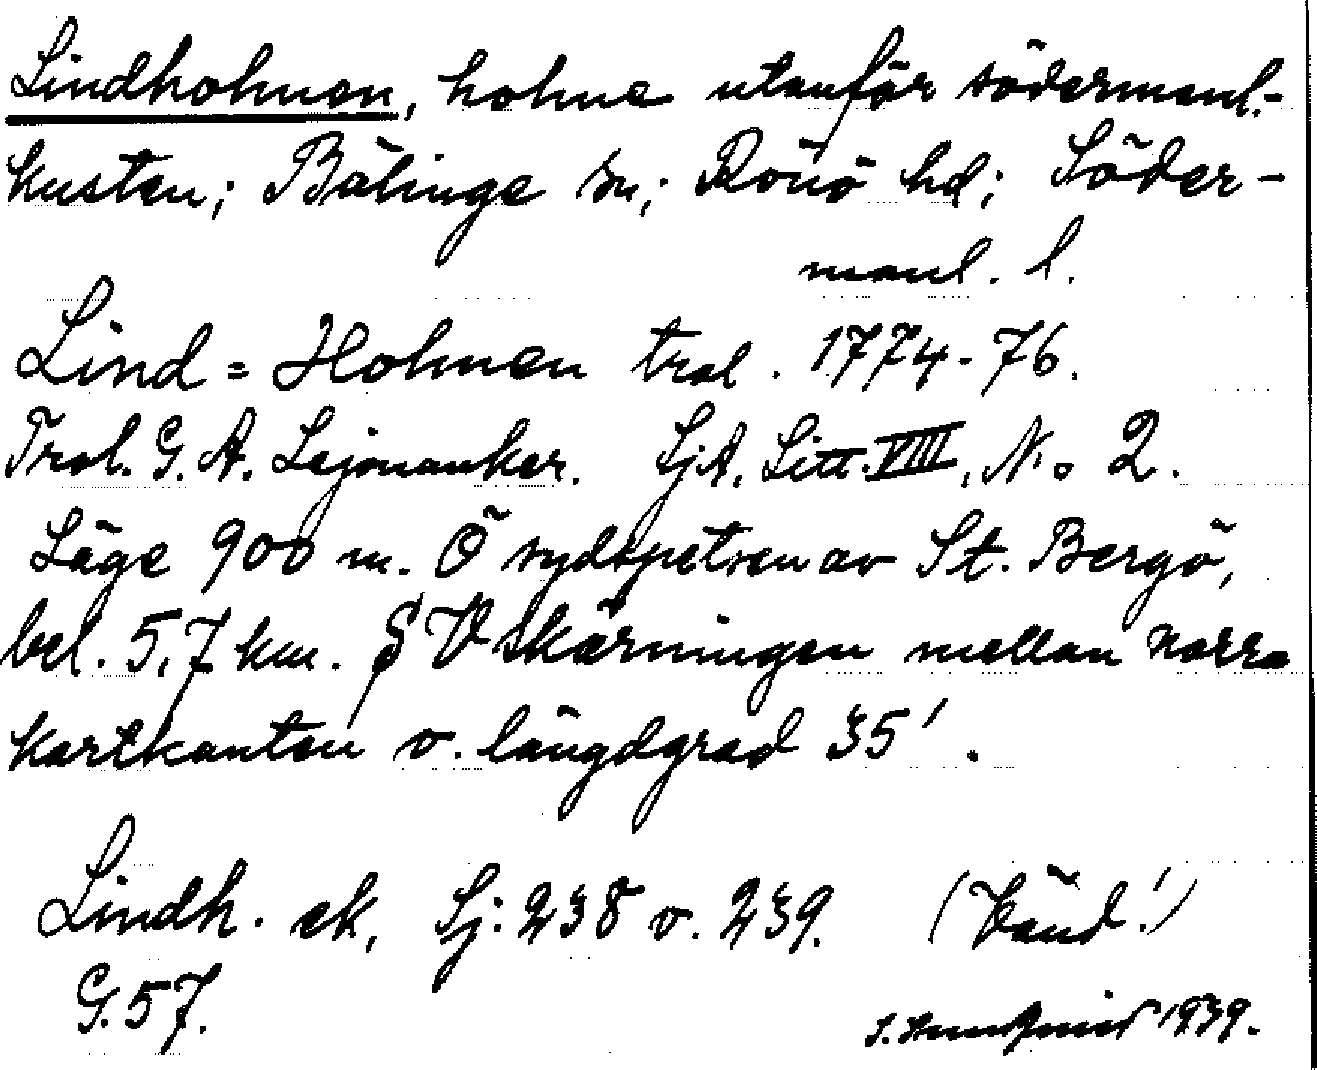 Lindholmen, holme utanför södermanl.-
kusten; Bälinge sn; Rönö hd; Söder-
manl. l.
Lind = Holmen tral. 1774-76.
Tral. G. A. Lejonanker. SjA. Litt. VIII, No 2.
Läge 900 m. Ö sydspetsen av St. Bergö,
bel. 5,7 km. S V skärningen mellan norra
kartkanten o. längdgrad 35'.
Lindh. ek. Sj: 238 o. 239. (Vänd!)
G. 57.
1939.